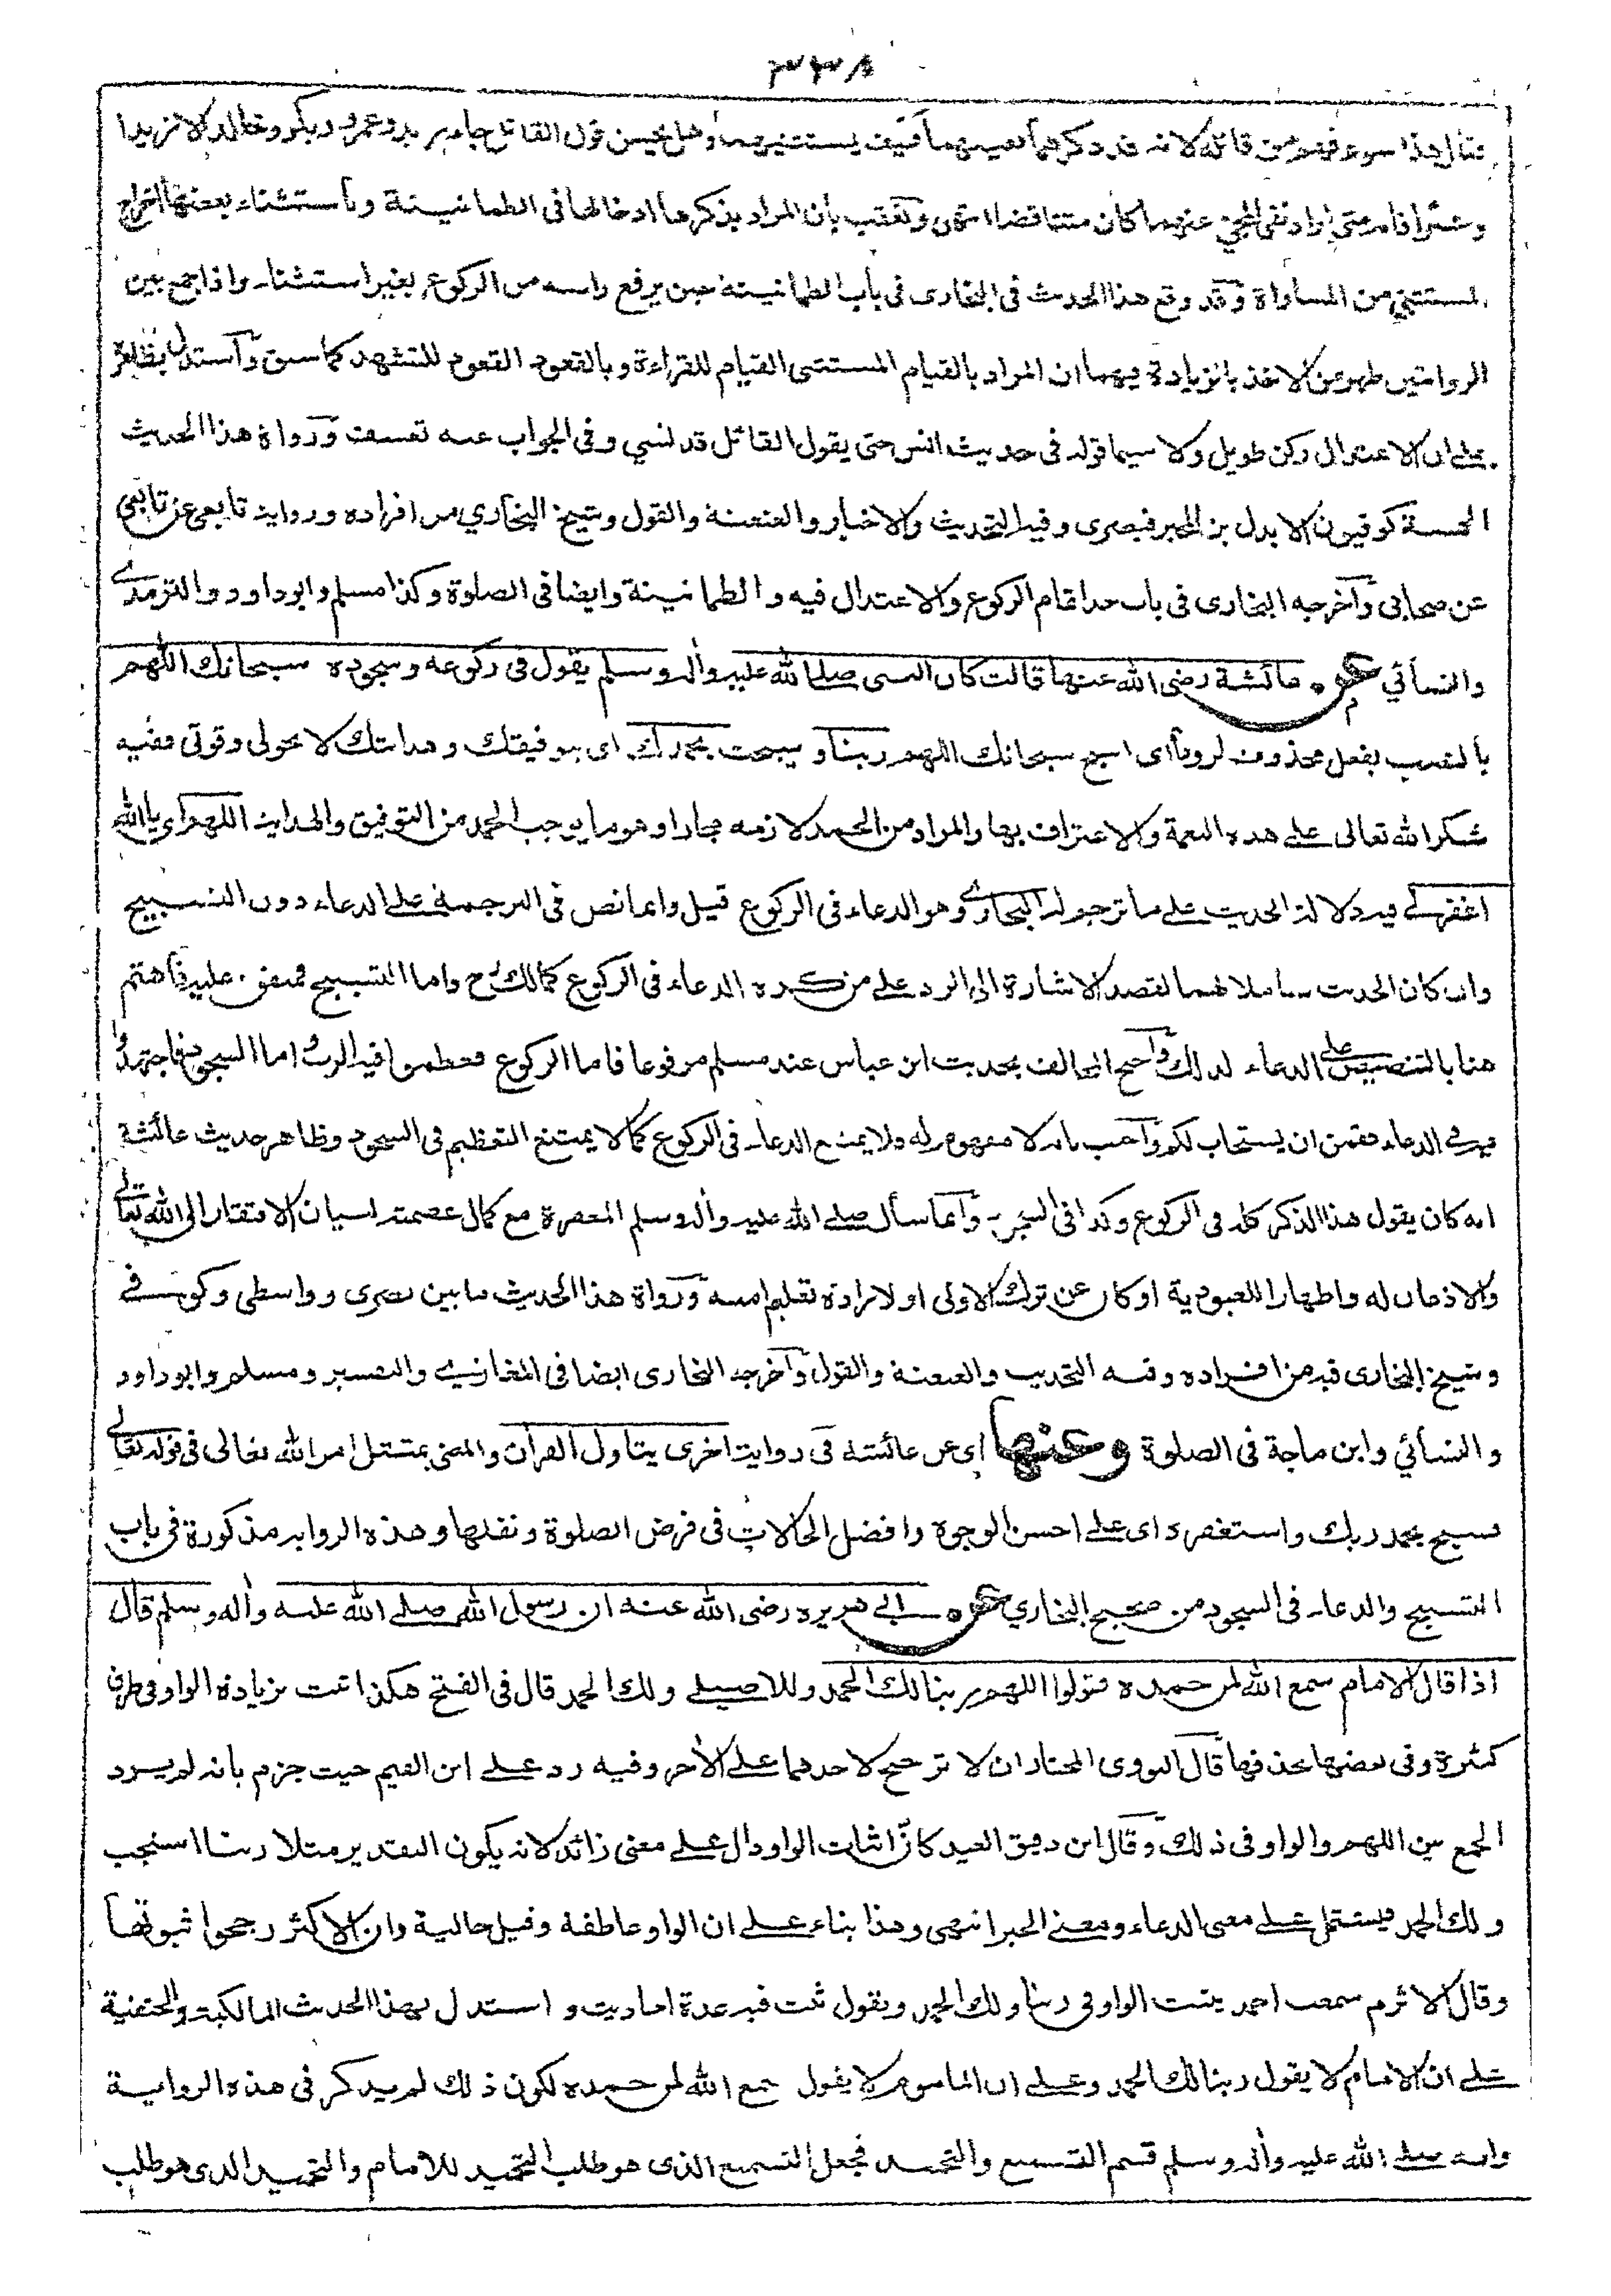 ٣٣٨
فقال هذا سوء فهم من قائله لانه قد ذكرهما بعينهما فكيف يستثنيهما وهل يحسن قول القائل جاء زيد وعمرو وبكر وخالد الا زيدا
وعمرا فانه متى اراد نفى المجئ عنهما كان متناقضا انتهى وتعقب بأن المراد بذكرها ادخالها فى الطمانينة وبأستثناء بعضها اخراج
المستثنى من المساواة وقد وقع هذا الحديث فى البخارى فى باب الطمانينة حين يرفع راسه من الركوع بغير استثناء واذا جمع بين
الروايتين ظهر من الاخذ بالزيادة فيهما ان المراد بالقيام المستثنى القيام للقراءة وبالقعود القعود للتشهد كما سبق وآستدل بظاهره
على ان الاعتدال ركن طويل ولا سيما قوله فى حديث انس حتى يقول القائل قد نسي وفى الجواب عنه تعسف ورواة هذا الحديث
الخمسة كوفيون الا بدل بن المحبر فبصرى وفيه التحديث والاخبار والعنعنة والقول وشيخ البخاري من افراده ورواية تابعى عن تابعي
عن صحابى وآخرجه البخارى فى باب حد اتمام الركوع والاعتدال فيه والطمانينة وايضا فى الصلوة وكذا مسلم وابو داود والترمذى
والنسائي عن عائشة رضى الله عنها قالت كان النبى صلى الله عليه وأله وسلم يقول فى ركوعه وسجوده سبحانك اللهم
بالنصب بفعل محذوف لزوما أى اسبح سبحانك اللهم ربنا و سبحت بحمدك اى بتوفيقك وهدايتك لا بحولى وقوتى ففيه
شكر الله تعالى على هذه النعمة والاعتراف بها والمراد من الحمد لازمه مجازا وهو ما يوجب الحمد من التوفيق والهداية اللهم اى يا الله
اغفر لى فيه دلالة الحديث على ما ترجم له البخارى وهو الدعاء فى الركوع قيل وانما نص فى الترجمة على الدعاء دون التسبيح
وان كان الحديث شاملا لهما لقصد الاشارة الى الرد على من كره الدعاء فى الركوع كمالك رح واما التسبيح فمتفق عليه فاهتم
هنا بالتنصيص على الدعاء لذلك وآحتج المخالف بحديث ابن عباس عند مسلم مرفوعا فاما الركوع فعظموا فيه الرب واما السجود فاجتهدوا
فيه فى الدعاء فقمن ان يستجاب لكم وآجيب بانه لا مفهوم له فلا يمتنع الدعاء فى الركوع كما لا يمتنع التعظيم فى السجود وظاهر حديث عائشة
انه كان يقول هذا الذكر كله فى الركوع وكذا فى السجود وآنما سأل صلى الله عليه وأله وسلم المغفرة مع كمال عصمته لبيان الافتقار الى الله تعالى
والاذعان له واظهارا للعبودية او كان عن ترك الاولى او لارادة تعليم امته ورواة هذا الحديث ما بين بصرى وواسطى وكوفى
وشيخ البخارى فيه من افراده وفيه التحديث والعنعنة والقول وآخرجه البخارى ايضا فى المغازى والتفسير ومسلم وابو داود
والنسائي وابن ماجة فى الصلوة وعنها اى عن عائشة فى رواية اخرى يتأول القرأن والمعنى يمتثل امر الله تعالى فى قوله تعالى
فسبح بحمد ربك واستغفره اى على احسن الوجوه وافضل الحالات فى فرض الصلوة ونفلها وهذه الرواية مذكورة فى باب
التسبيح والدعاء فى السجود من صحيح البخاري عن ابى هريره رضى الله عنه ان رسول الله صلى الله عليه وأله وسلم قال
اذا قال الامام سمع الله لمن حمده فقولوا اللهم ربنا لك الحمد وللاصيلى ولك الحمد قال فى الفتح هكذا ثبت بزيادة الواو فى طرق
كثيرة وفى بعضها بحذفها قال النووى المختار ان لا ترجيح لاحدهما على الأخر وفيه رد على ابن القيم حيث جزم بأنه لم يرد
الجمع بين اللهم والواو فى ذلك وقال ابن دقيق العيد كأن اثبات الواو دال على معنى زائد لانه يكون التقدير مثلا ربنا استجب
ولك الحمد فيشتمل على معنى الدعاء ومعنى الخبر انتهى وهذا بناء على ان الواو عاطفة وقيل حالية وان الاكثر رجحوا ثبوتها
وقال الاثرم سمعت احمد يثبت الواو فى ربنا ولك الحمد ويقول ثبت فيه عدة احاديث و استدل بهذا الحديث المالكية والحنفية
على ان الامام لا يقول ربنا لك الحمد وعلى ان الماموم لا يقول سمع الله لمن حمده لكون ذلك لم يذكر فى هذه الرواية
وانه صلى الله عليه وأله وسلم قسم التسميع والتحميد فجعل التسميع الذى هو طلب التحميد للامام والتحميد الذى هو طلب